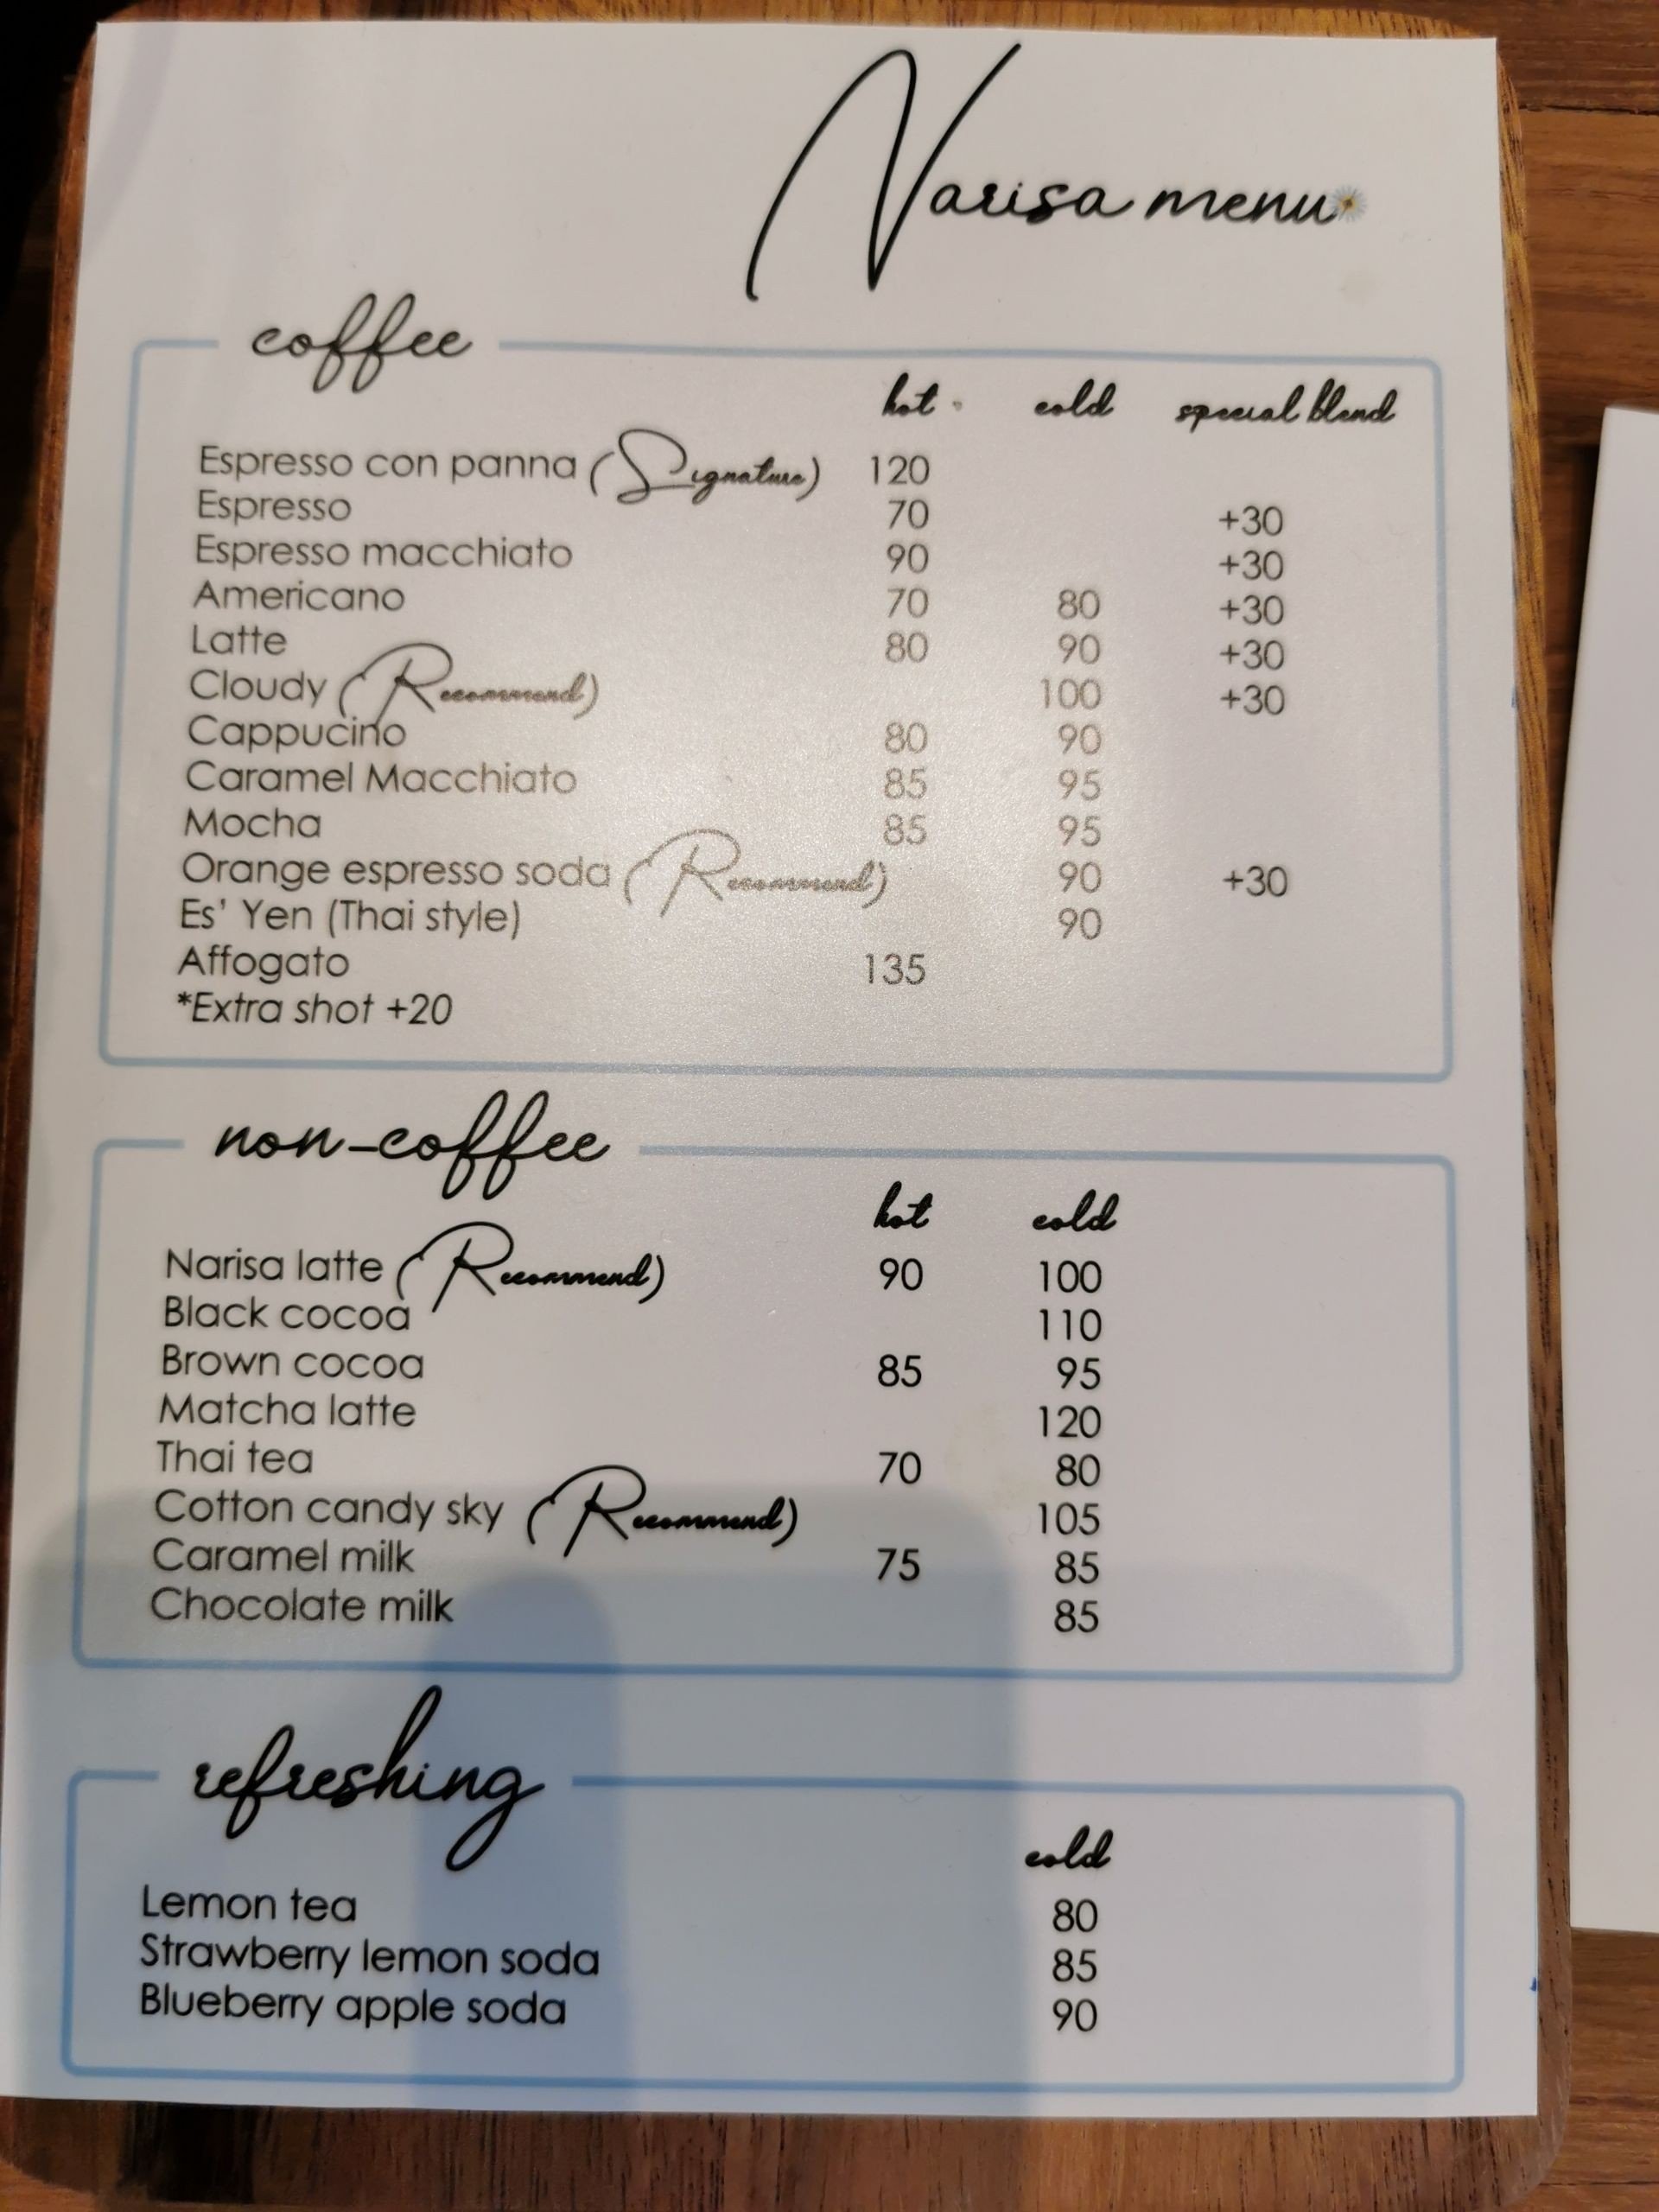 Narisa menu
coffee
hot cold special blend
Espresso con panna (Signature) 120
Espresso 70 +30
Espresso macchiato 90 +30
Americano 70 80 +30
Latte 80 90 +30
Cloudy (Recommend) 100 +30
Cappucino 80 90
Caramel Macchiato 85 95
Mocha 85 95
Orange espresso soda (Recommend) 90 +30
Es' Yen (Thai style) 90
Affogato 135
*Extra shot +20
non-coffee
hot cold
Narisa latte (Recommend) 90 100
Black cocoa 110
Brown cocoa 85 95
Matcha latte 120
Thai tea 70 80
Cotton candy sky (Recommend) 105
Caramel milk 75 85
Chocolate milk 85
refreshing
cold
Lemon tea 80
Strawberry lemon soda 85
Blueberry apple soda 90